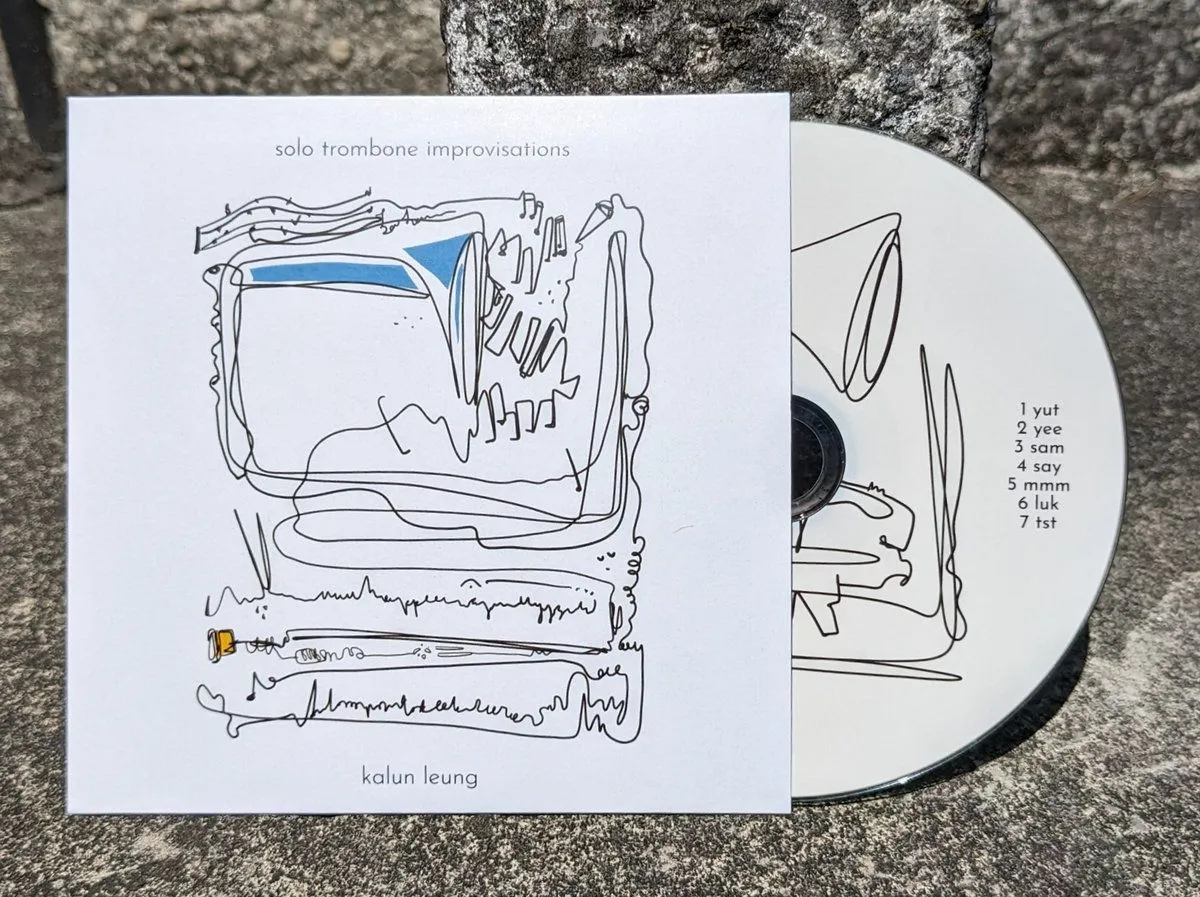 solo trombone improvisations
kalun leung
1 yut
2 yee
3 sam
4 say
5 mmm
6 luk
7 tst